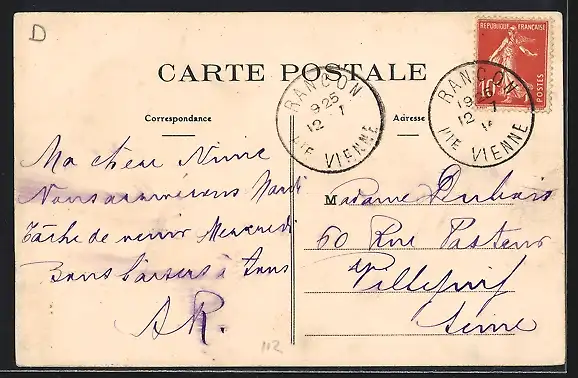 D
CARTE POSTALE
RÉPUBLIQUE FRANÇAISE
10c
POSTES
RANCON
19 25
12 - 1
Hte VIENNE
RANCON
12 1
Hte VIENNE
Correspondance
Adresse
Ma chère Ninie
Nous arriverons Mardi
Tâche de venir Mercredi
Bons Baisers à tous
AR.
Madame Dubois
60 Rue Pasteur
Villejuif
Seine
112